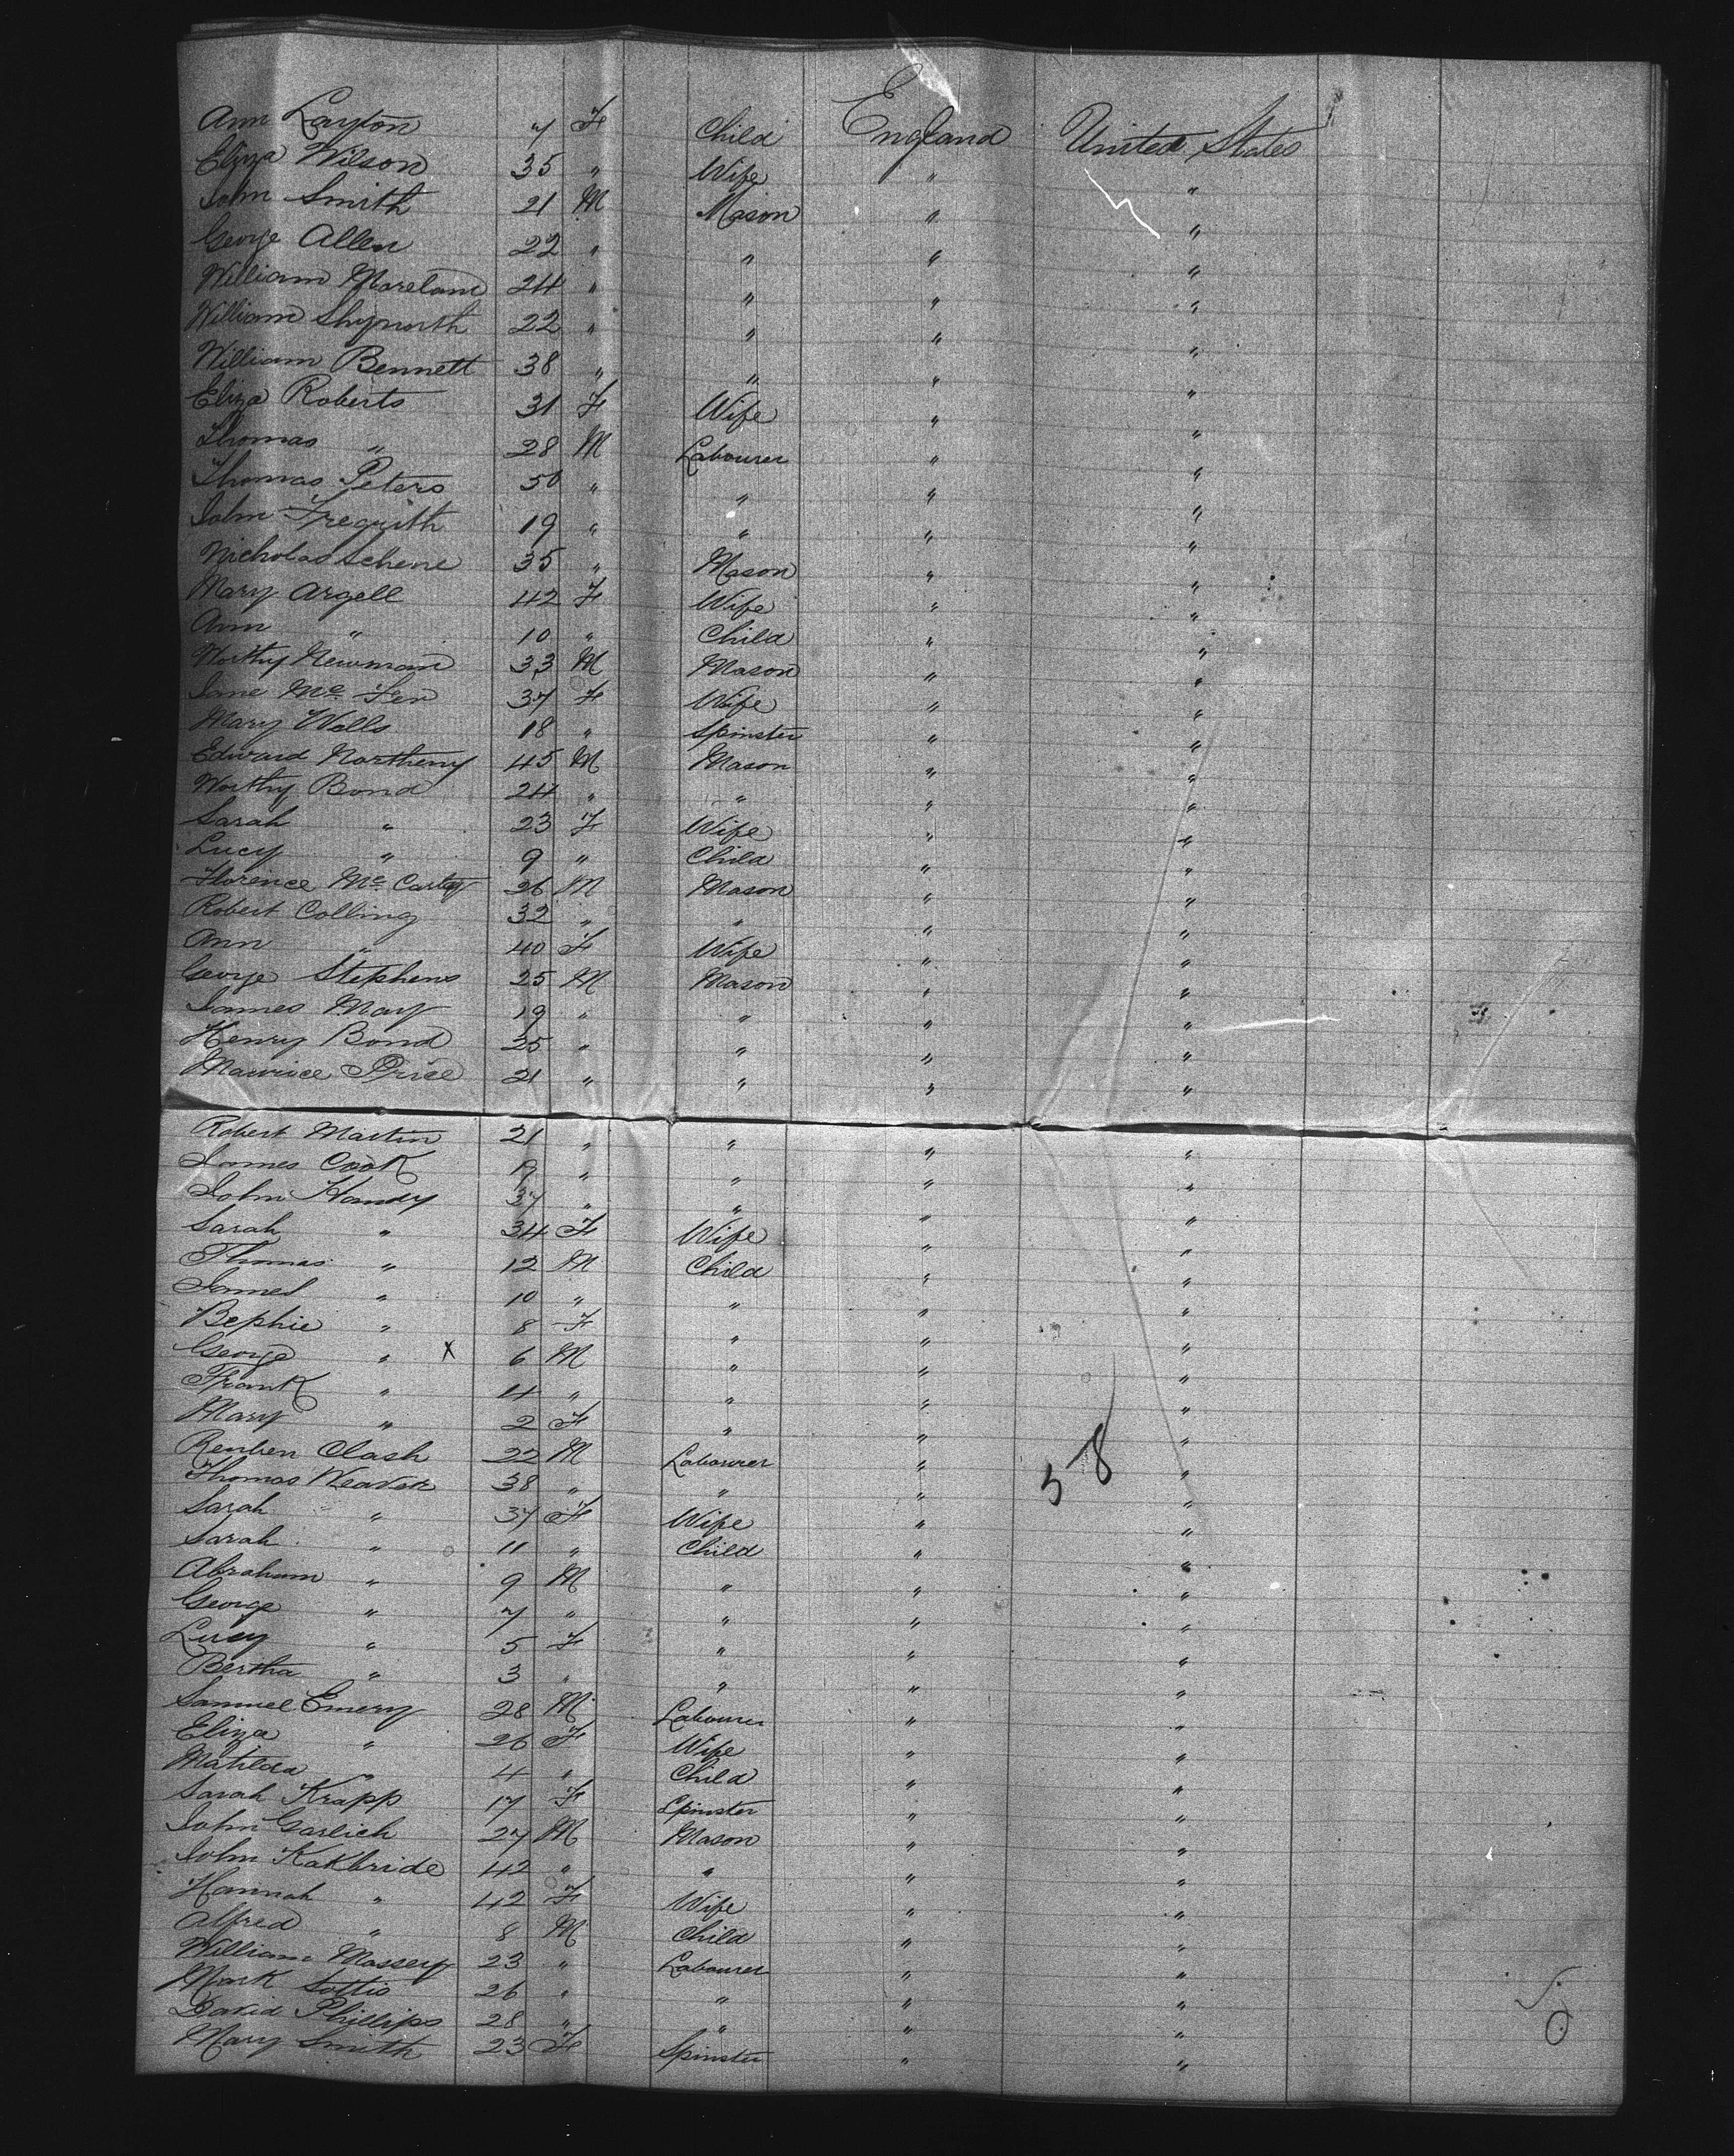 Ann Layton 7 F Child England United States
Eliza Wilson 35 " Wife " "
John Smith 21 M Mason " "
George Allen 22 " " " "
William Moreland 24 " " " "
William 22 " " " "
William Bennett 38 " " " "
Eliza Roberts 31 F Wife " "
Thomas " 28 M Labourer " "
Thomas Peters 50 " " " "
John 19 " " " "
Nicholas Schene 35 " Mason " "
Mary Argell 42 F Wife " "
Ann " 10 " Child " "
Worthy Newman 33 M Mason " "
Jane Mc 37 F Wife " "
Mary Wells 18 " Spinster " "
Edward Northeny 45 M Mason " "
Worthy Bond 24 " " " "
Sarah " 23 F Wife " "
Lucy " 9 " Child " "
Florence Mc Carty 26 M Mason " "
Robert Colling 32 " " " "
Ann " 40 F Wife " "
George Stephens 25 M Mason " "
James May 19 " " " "
Henry Bond 25 " " " "
Maurice Price 21 " " " "
Robert Martin 21 " " " "
James Cook 19 " " " "
John Handy 37 " " " "
Sarah " 34 F Wife " "
Thomas " 12 M Child " "
James " 10 " " " "
Bephie " 8 F " " "
George " X 6 M " " "
Frank " 4 " " " "
Mary " 2 F " " "
Reuben Clash 22 M Labourer " "
Thomas Weaver 38 " " " "
58
Sarah " 37 F Wife " "
Sarah " 11 " Child " "
Abraham " 9 M " " "
George " 7 " " " "
Lucy " 5 F " " "
Bertha " 3 " " " "
Samuel Emery 28 M Labourer " "
Eliza " 26 F Wife " "
Matilda " 4 " Child " "
Sarah Knapp 17 F Spinster " "
John Garlich 27 M Mason " "
John Kakbride 42 " " " "
Hannah " 42 F Wife " "
Alfred " 8 M Child " "
William Massey 23 " Labourer " "
Mark 26 " " " "
David Phillips 28 " " " "
Mary Smith 23 F Spinster " "